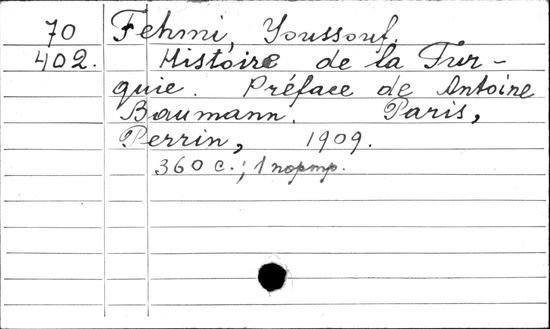 70 Fehmi, Youssouf.
402. Histoire de la Tur-
quie. Préface de Antoine
Baumann. Paris,
Perrin, 1909.
360 с.; 1 портр.